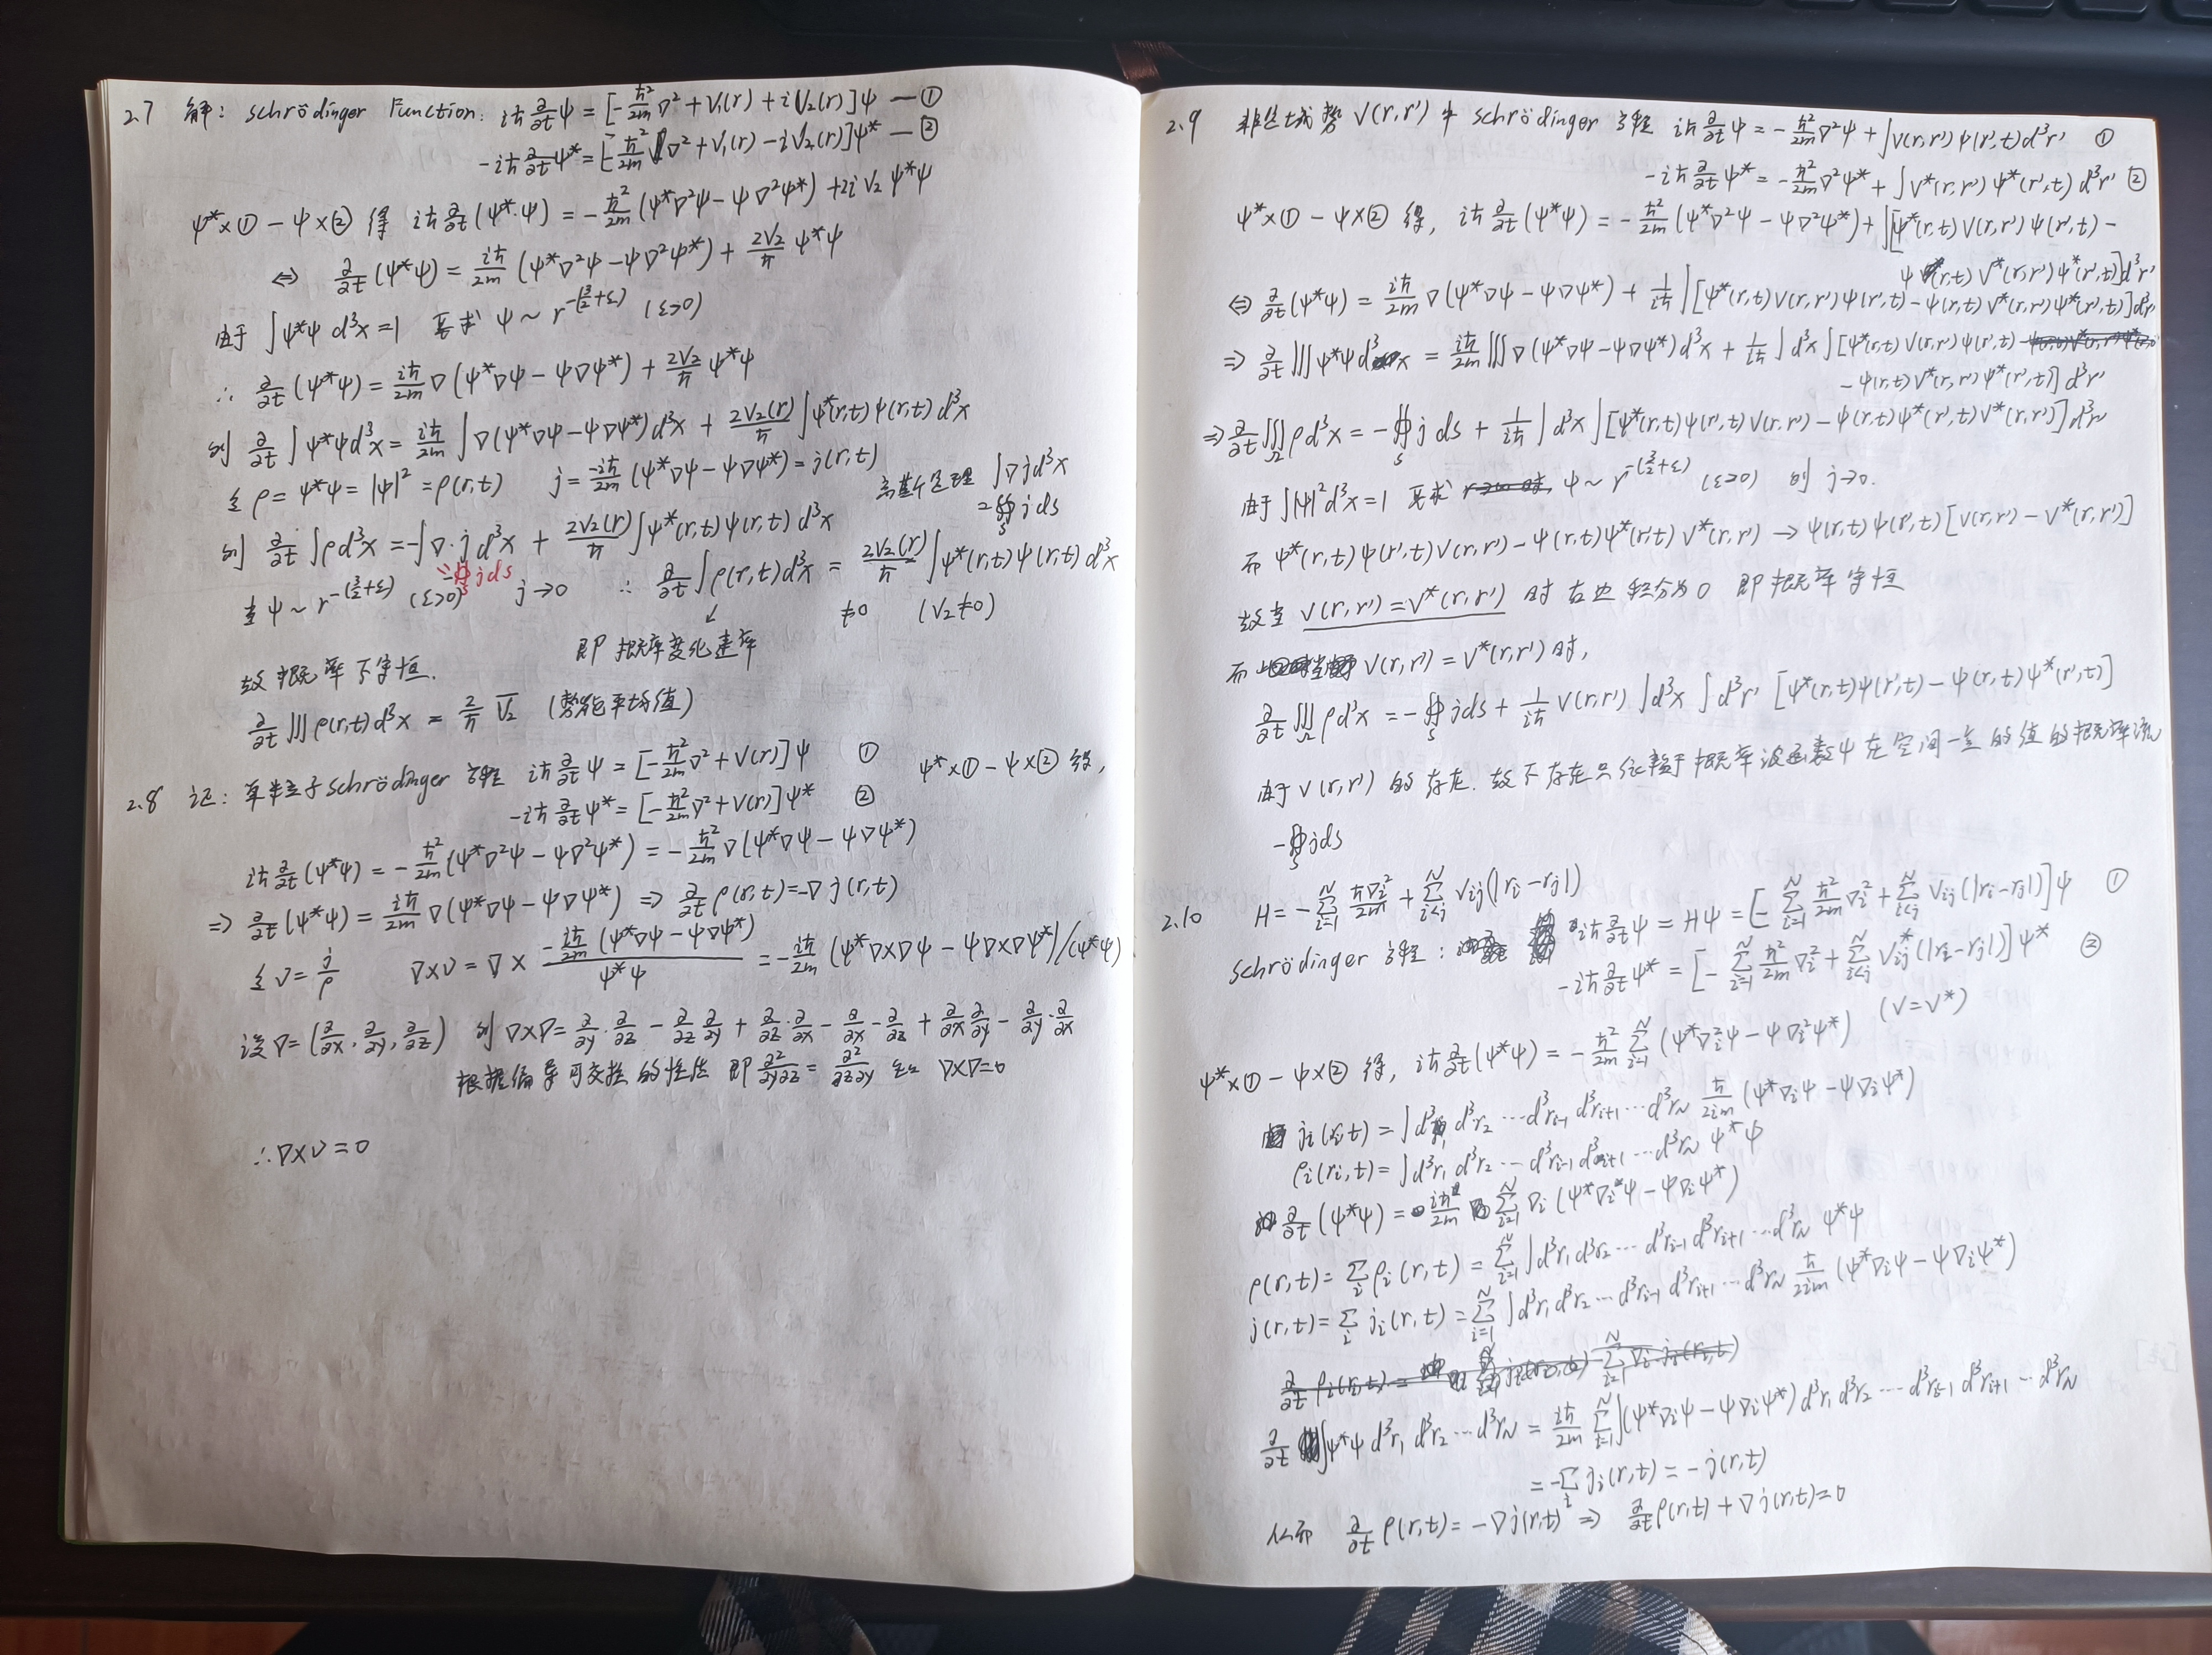 2.7 解: schrödinger Function: iħ ∂/∂t ψ = [-ħ²/2m ∇² + V₁(r) + iV₂(r)]ψ —①
-iħ ∂/∂t ψ* = [-ħ²/2m ∇² + V₁(r) - iV₂(r)]ψ* —②
ψ*×① - ψ×② 得 iħ ∂/∂t (ψ*·ψ) = -ħ²/2m (ψ*∇²ψ - ψ∇²ψ*) + 2iV₂ψ*ψ
⇔ ∂/∂t (ψ*ψ) = iħ/2m (ψ*∇²ψ - ψ∇²ψ*) + 2V₂/ħ ψ*ψ
由于 ∫ψ*ψ d³x = 1 要求 ψ ~ r^-(3/2+ε) (ε>0)
∴ ∂/∂t (ψ*ψ) = iħ/2m ∇(ψ*∇ψ - ψ∇ψ*) + 2V₂/ħ ψ*ψ
则 ∂/∂t ∫ψ*ψd³x = iħ/2m ∫∇(ψ*∇ψ - ψ∇ψ*)d³x + 2V₂(r)/ħ ∫ψ*(r,t)ψ(r,t)d³x
令 ρ = ψ*ψ = |ψ|² = ρ(r,t) j = -iħ/2m (ψ*∇ψ - ψ∇ψ*) = j(r,t) 高斯定理 ∫∇jd³x
= ∯_s jds
则 ∂/∂t ∫ρd³x = -∫∇·jd³x + 2V₂(r)/ħ ∫ψ*(r,t)ψ(r,t)d³x
-∯_s jds
当 ψ ~ r^-(3/2+ε) (ε>0) j→0 ∴ ∂/∂t ∫ρ(r,t)d³x = 2V₂(r)/ħ ∫ψ*(r,t)ψ(r,t)d³x
≠0 (V₂≠0)
即概率变化速率
故概率不守恒.
∂/∂t ∭ρ(r,t)d³x = 2/ħ V̄₂ (势能平均值)
2.8 证: 单粒子schrödinger方程 iħ ∂/∂t ψ = [-ħ²/2m ∇² + V(r)]ψ ① ψ*×① - ψ×② 得,
-iħ ∂/∂t ψ* = [-ħ²/2m ∇² + V(r)]ψ* ②
iħ ∂/∂t (ψ*ψ) = -ħ²/2m (ψ*∇²ψ - ψ∇²ψ*) = -ħ²/2m ∇(ψ*∇ψ - ψ∇ψ*)
⇒ ∂/∂t (ψ*ψ) = iħ/2m ∇(ψ*∇ψ - ψ∇ψ*) ⇒ ∂/∂t ρ(r,t) = -∇j(r,t)
令 v = j/ρ ∇×v = ∇× [-iħ/2m (ψ*∇ψ - ψ∇ψ*)]/ψ*ψ = -iħ/2m (ψ*∇×∇ψ - ψ∇×∇ψ*)/(ψ*ψ)
设∇ = (∂/∂x, ∂/∂y, ∂/∂z) 则 ∇×∇ = ∂/∂y·∂/∂z - ∂/∂z ∂/∂y + ∂/∂z·∂/∂x - ∂/∂x·∂/∂z + ∂/∂x ∂/∂y - ∂/∂y·∂/∂x
根据偏导可交换的性质 即 ∂²/∂y∂z = ∂²/∂z∂y ∇×∇=0
∴∇×v = 0
2.9 非定域势 V(r,r') 中 schrödinger 方程 iħ ∂/∂t ψ = -ħ²/2m ∇²ψ + ∫V(r,r')ψ(r',t)d³r' ①
-iħ ∂/∂t ψ* = -ħ²/2m ∇²ψ* + ∫V*(r,r')ψ*(r',t)d³r' ②
ψ*×① - ψ×② 得, iħ ∂/∂t (ψ*ψ) = -ħ²/2m (ψ*∇²ψ - ψ∇²ψ*) + ∫[ψ*(r,t)V(r,r')ψ(r',t) -
ψ(r,t)V*(r,r')ψ*(r',t)]d³r'
⇔ ∂/∂t (ψ*ψ) = iħ/2m ∇(ψ*∇ψ - ψ∇ψ*) + 1/iħ ∫[ψ*(r,t)V(r,r')ψ(r',t) - ψ(r,t)V*(r,r')ψ*(r',t)]d³r'
⇒ ∂/∂t ∭ψ*ψd³x = iħ/2m ∭∇(ψ*∇ψ - ψ∇ψ*)d³x + 1/iħ ∫d³x∫[ψ*(r,t)V(r,r')ψ(r',t)
- ψ(r,t)V*(r,r')ψ*(r',t)]d³r'
⇒ ∂/∂t ∭_Ω ρd³x = -∯_s jds + 1/iħ ∫d³x∫[ψ*(r,t)ψ(r',t)V(r,r') - ψ(r,t)ψ*(r',t)V*(r,r')]d³r'
由于 ∫|ψ|²d³x = 1 要求 ψ ~ r^-(3/2+ε) (ε>0) 则 j→0.
而 ψ*(r,t)ψ(r',t)V(r,r') - ψ(r,t)ψ*(r',t)V*(r,r') → ψ(r,t)ψ(r',t)[V(r,r') - V*(r,r')]
故当 V(r,r') = V*(r,r') 时右边积分为0 即概率守恒
而 V(r,r') = V*(r,r')时,
∂/∂t ∭_Ω ρd³x = -∯_s jds + 1/iħ V(r,r')∫d³x∫d³r' [ψ*(r,t)ψ(r',t) - ψ(r,t)ψ*(r',t)]
由于V(r,r')的存在. 故不存在只依赖于概率波函数ψ在空间一点的值的概率流
-∯_s jds
2.10 H = -∑_{i=1}^N ħ∇ᵢ²/2m + ∑_{i<j}^N Vᵢⱼ(|rᵢ-rⱼ|)
schrödinger 方程: iħ ∂/∂t ψ = Hψ = [-∑_{i=1}^N ħ²/2m ∇ᵢ² + ∑_{i<j}^N Vᵢⱼ(|rᵢ-rⱼ|)]ψ ①
-iħ ∂/∂t ψ* = [-∑_{i=1}^N ħ²/2m ∇ᵢ² + ∑_{i<j}^N Vᵢⱼ*(|rᵢ-rⱼ|)]ψ* ②
(V=V*)
ψ*×① - ψ×② 得, iħ ∂/∂t (ψ*ψ) = -ħ²/2m ∑_{i=1}^N (ψ*∇ᵢ²ψ - ψ∇ᵢ²ψ*)
jᵢ(rᵢ,t) = ∫d³r₁ d³r₂ ⋯ d³rᵢ₋₁ d³rᵢ₊₁ ⋯ d³r_N ħ/2im (ψ*∇ᵢψ - ψ∇ᵢψ*)
ρᵢ(rᵢ,t) = ∫d³r₁ d³r₂ ⋯ d³rᵢ₋₁ d³rᵢ₊₁ ⋯ d³r_N ψ*ψ
∂/∂t (ψ*ψ) = iħ/2m ∑_{i=1}^N ∇ᵢ(ψ*∇ᵢψ - ψ∇ᵢψ*)
ρ(r,t) = ∑ᵢ ρᵢ(r,t) = ∑_{i=1}^N ∫d³r₁ d³r₂ ⋯ d³rᵢ₋₁ d³rᵢ₊₁ ⋯ d³r_N ψ*ψ
j(r,t) = ∑ᵢ jᵢ(r,t) = ∑_{i=1}^N ∫d³r₁ d³r₂ ⋯ d³rᵢ₋₁ d³rᵢ₊₁ ⋯ d³r_N ħ/2im (ψ*∇ᵢψ - ψ∇ᵢψ*)
∂/∂t ∫ψ*ψ d³r₁ d³r₂ ⋯ d³r_N = iħ/2m ∑_{i=1}^N ∫(ψ*∇ᵢψ - ψ∇ᵢψ*)d³r₁ d³r₂ ⋯ d³rᵢ₋₁ d³rᵢ₊₁ ⋯ d³r_N
= -∑ᵢ jᵢ(r,t) = -j(r,t)
从而 ∂/∂t ρ(r,t) = -∇j(r,t) ⇒ ∂/∂t ρ(r,t) + ∇j(r,t) = 0